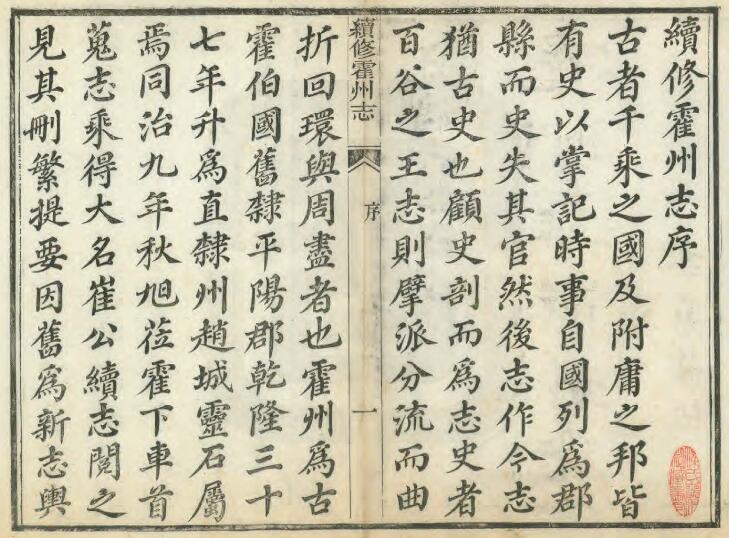 續修霍州志序
古者千乘之國及附庸之邦皆
有史以掌記時事自國列爲郡
縣而史失其官然後志作今志
猶古史也顧史剖而爲志史者
百谷之王志則擘派分流而曲
續修霍州志
序
一
折回環與周盡者也霍州爲古
霍伯國舊隸平陽郡乾隆三十
七年升爲直隸州趙城靈石屬
焉同治九年秋旭莅霍下車首
蒐志乘得大名崔公續志閱之
見其刪繁提要因舊爲新志輿